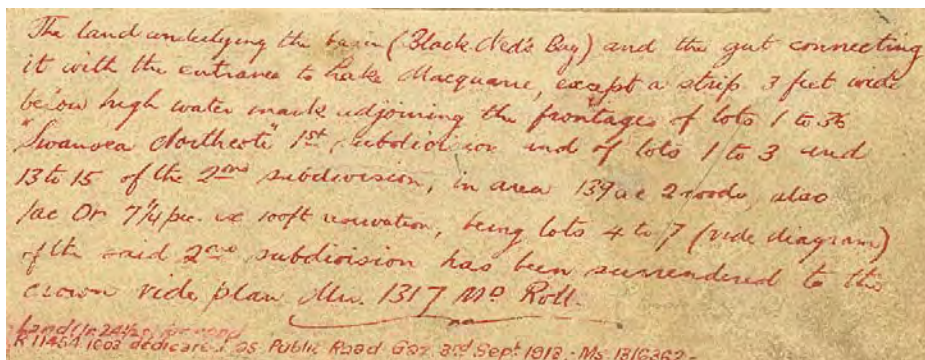 The land underlying the basin (Black Ned's Bay) and the gut connecting
it with the entrance to Lake Macquarie, except a strip 3 feet wide
below high water mark adjoining the frontages of lots 1 to 36
"Swansea Northcote" 1st subdivision and of lots 1 to 3 and
13 to 15 of the 2nd subdivision, in area 139ac 2roods, also
1ac 0r 7¼per. 100ft reservation, being lots 4 to 7 (vide diagram)
of the said 2nd subdivision has been surrendered to the
crown vide plan 1317 Md Roll.
R 11454.1603 dedicated as Public Road Gaz 3rd Sept. 1913. Ms 1316362